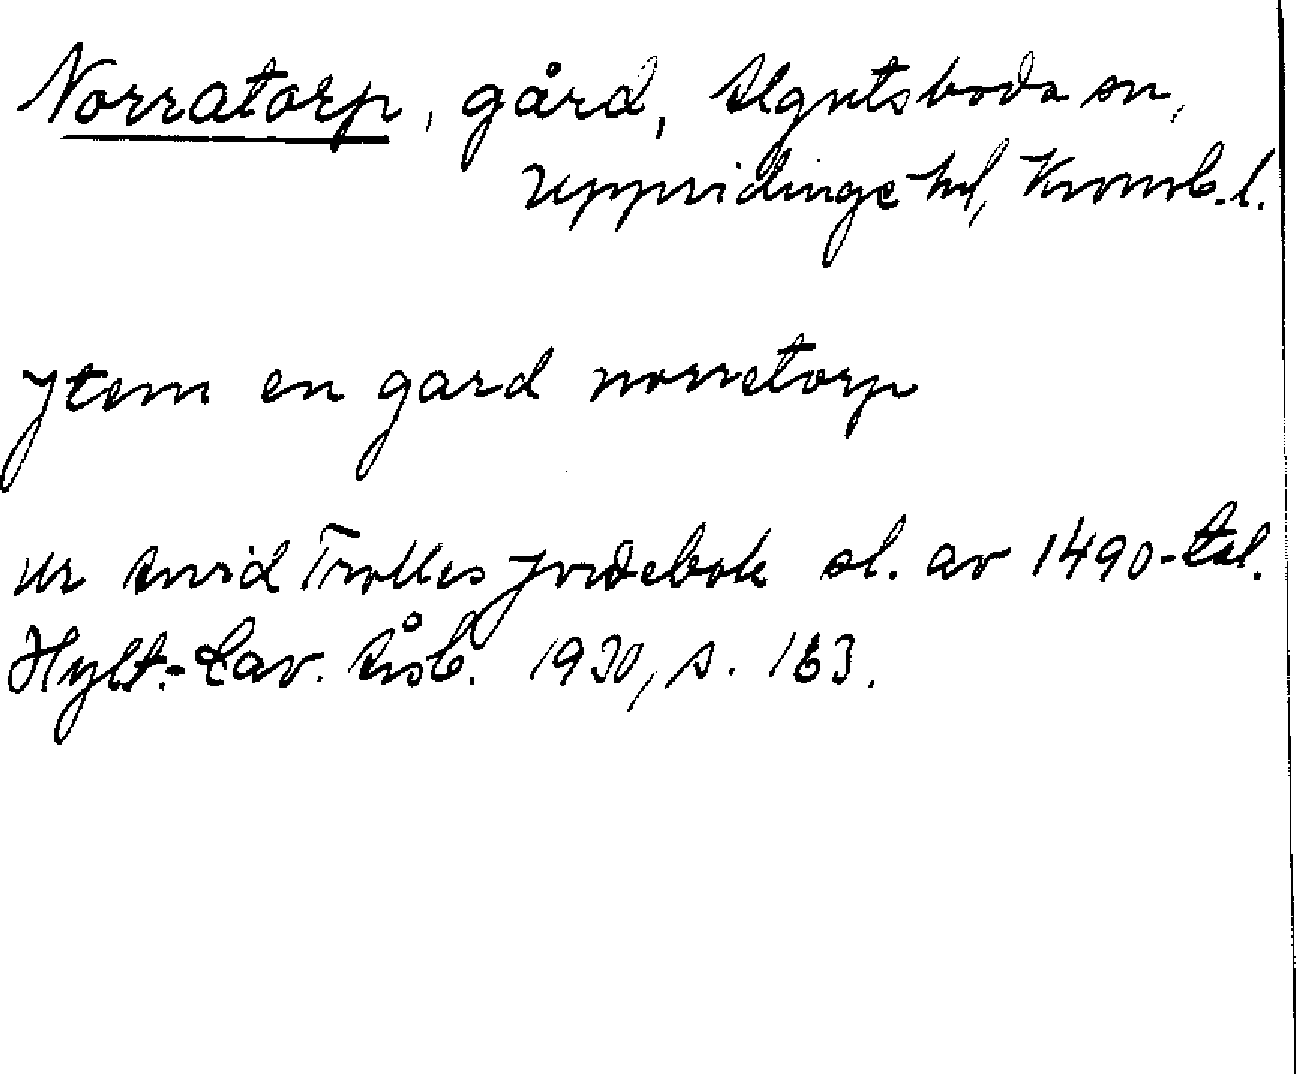 Norratorp, gård, Algutsboda sn,
Uppvidinge hd, Kronob. l.
Jtem en gard norretorp
Ur Arvid Trolles Jordebok sl. av 1490-tal.
Hylt.-Cav. Årsb. 1930, s. 163.